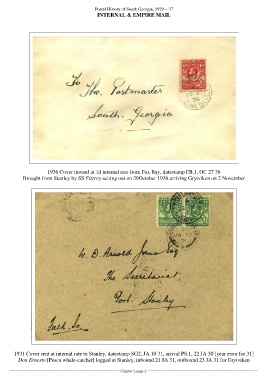 Postal History of South Georgia, 1929 – 37
INTERNAL & EMPIRE MAIL
To The Postmaster
South Georgia
1936 Cover inward at 1d internal rate from Fox Bay, datestamp FB.1, OC 27 36
Brought from Stanley by SS Fitzroy setting out on 29October 1936 arriving Grytviken on 2 November
W. D. Arnold Jones Esq
The Secretariat
Port Stanley
Falk. Is.
1931 Cover sent at internal rate to Stanley, datestamp SG2, JA 10 31, arrival PS.1, 22 JA 30 [year error for 31]
Don Ernesto [Pesca whale-catcher] logged at Stanley, inbound 21 JA 31, outbound 23 JA 31 for Grytviken